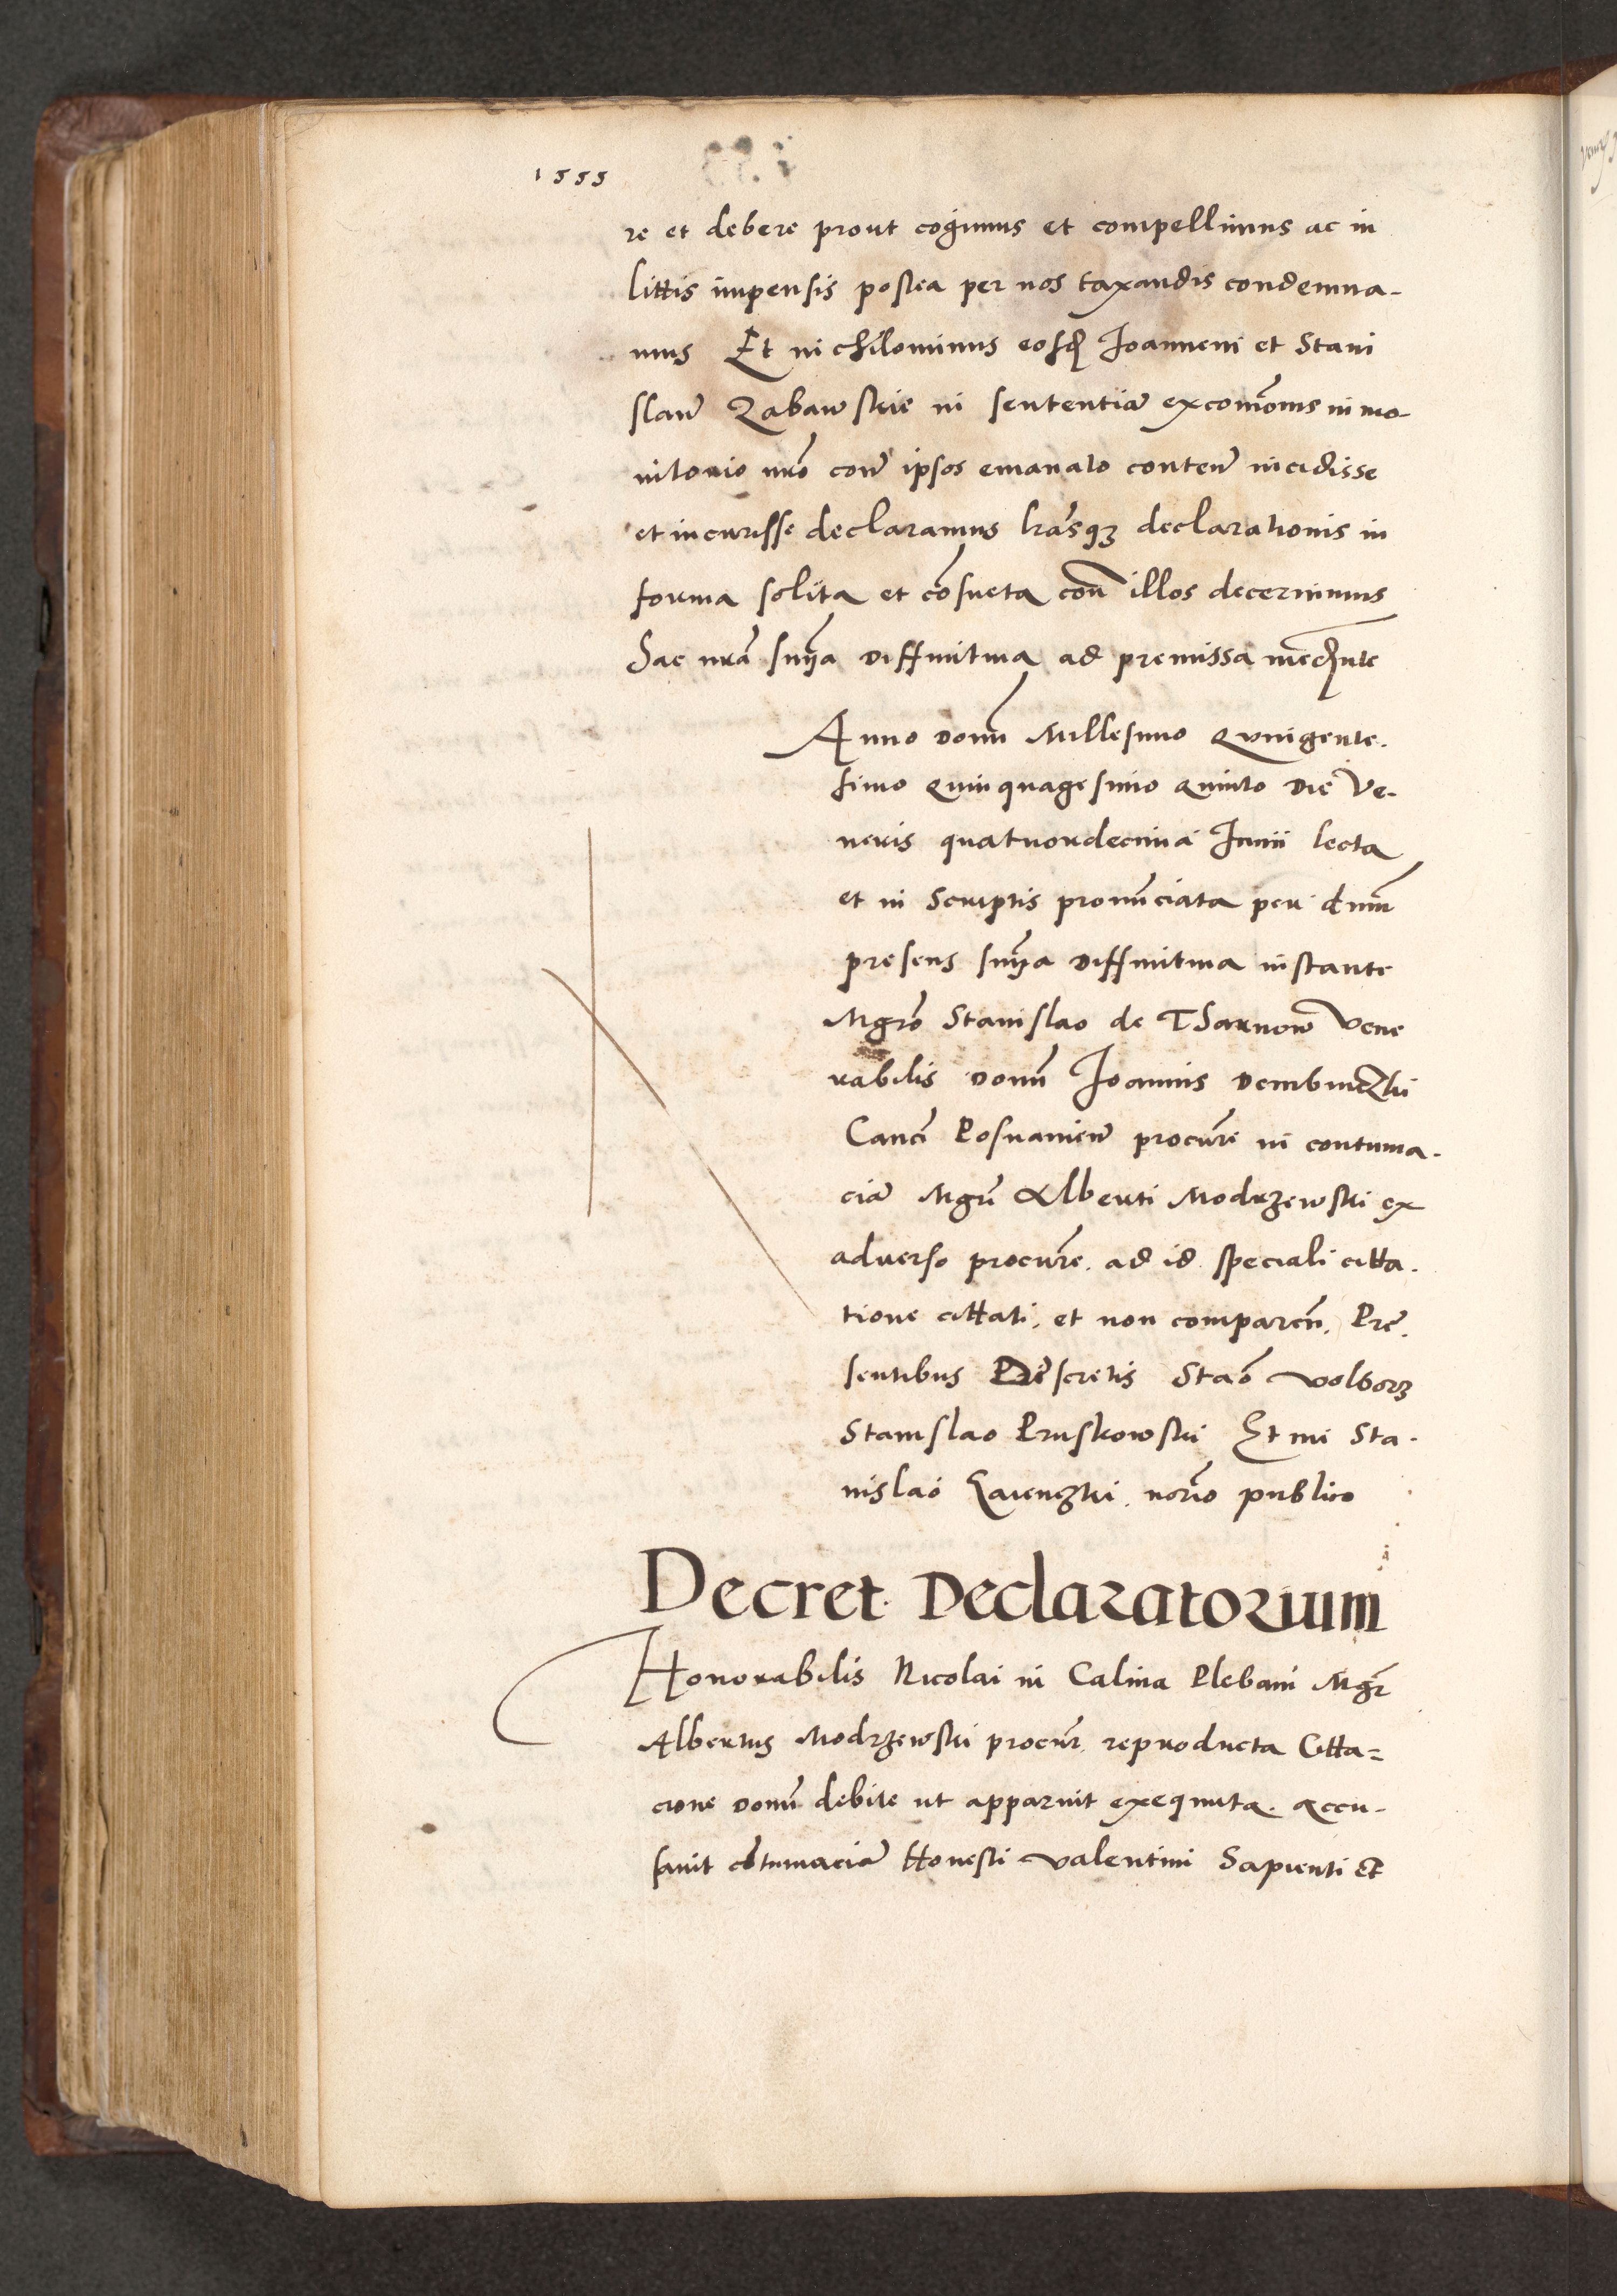 1555
re et debere prout cogimus et compellimus ac in
littis impensis postea per nos taxandis condemna-
mus Et nichilominus eosd Joannem et Stani
slaum Zabawskie in sententia excomonis in mo-
nitorio nro con ipsos emanato conten incidisse
et incurisse declaramus lrasq3 declarationis in
forma solita et cosueta con illos decernimus
Hac nra snia diffinitiva ad premissa mediante
Anno domi Millesimo Quingente.
simo Quinquagesimo Quinto Die Ve-
neris quatuordecima Junii lecta
et in Scriptis pronunciata per dnum
presens snia diffinitiva instante
Mgro Stanislao de Tharnow Vene
rabilis Domi Joannis Dembinczki
Canci Posnanien procure in contuma-
cia Mgri Alberti Modrzewski ex
adverso procure. ad id speciali citta.
tione cittati, et non comparen. Pre.
sentibus Discretis Stao Wolborz
Stanislao Pruskowski Et me Sta-
nislao norio publico
Decret. Declaratorium
Honorabilis Nicolai in Calina Plebani Mgr
Albertus Modrzewski procur. reproducta Citta=
cione Domi debite ut apparuit exequuta. accu-
savit cotumacia Honesti Valentini Sapienti et